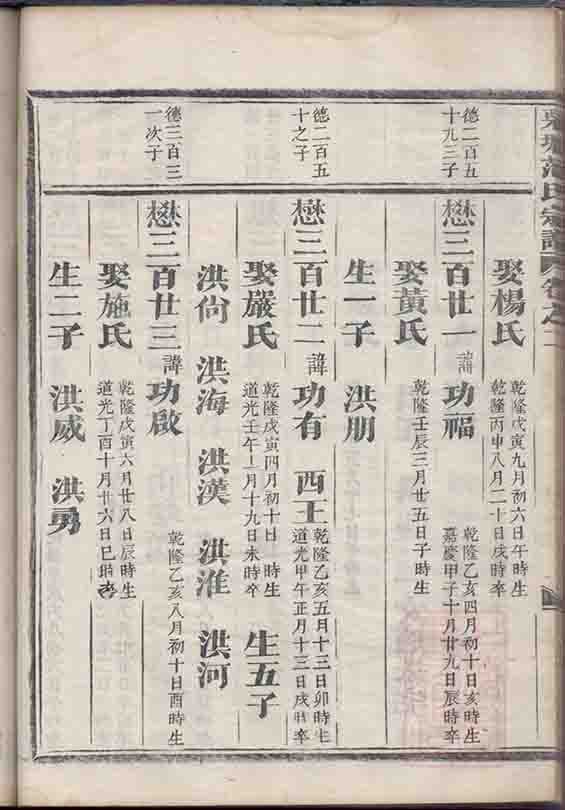 氏宗譜 卷之
娶楊氏
乾隆戊寅九月初六日午時生
乾隆丙申八月二十日戌時卒
德二百五
十九三子
懋三百廿一 諱 功福
乾隆乙亥四月初十日亥時生
嘉慶甲子十月廿九日辰時卒
娶黃氏 乾隆壬辰三月廿五日子時生
生一子 洪朋
德二百五
十之子
懋三百廿二 諱 功有 西王
乾隆乙亥五月十三日卯時生
道光甲午正月十三日戌時卒
娶嚴氏
乾隆戊寅四月初十日 時生
道光壬午月十九日未時卒
生五子
洪尙 洪海 洪漢 洪淮 洪河
德三百三
一次子
懋三百廿三 諱 功啟 乾隆乙亥八月初十日酉時生
娶施氏
乾隆戊寅六月廿八日辰時生
道光丁酉十月廿六日巳時卒
生二子 洪威 洪勇